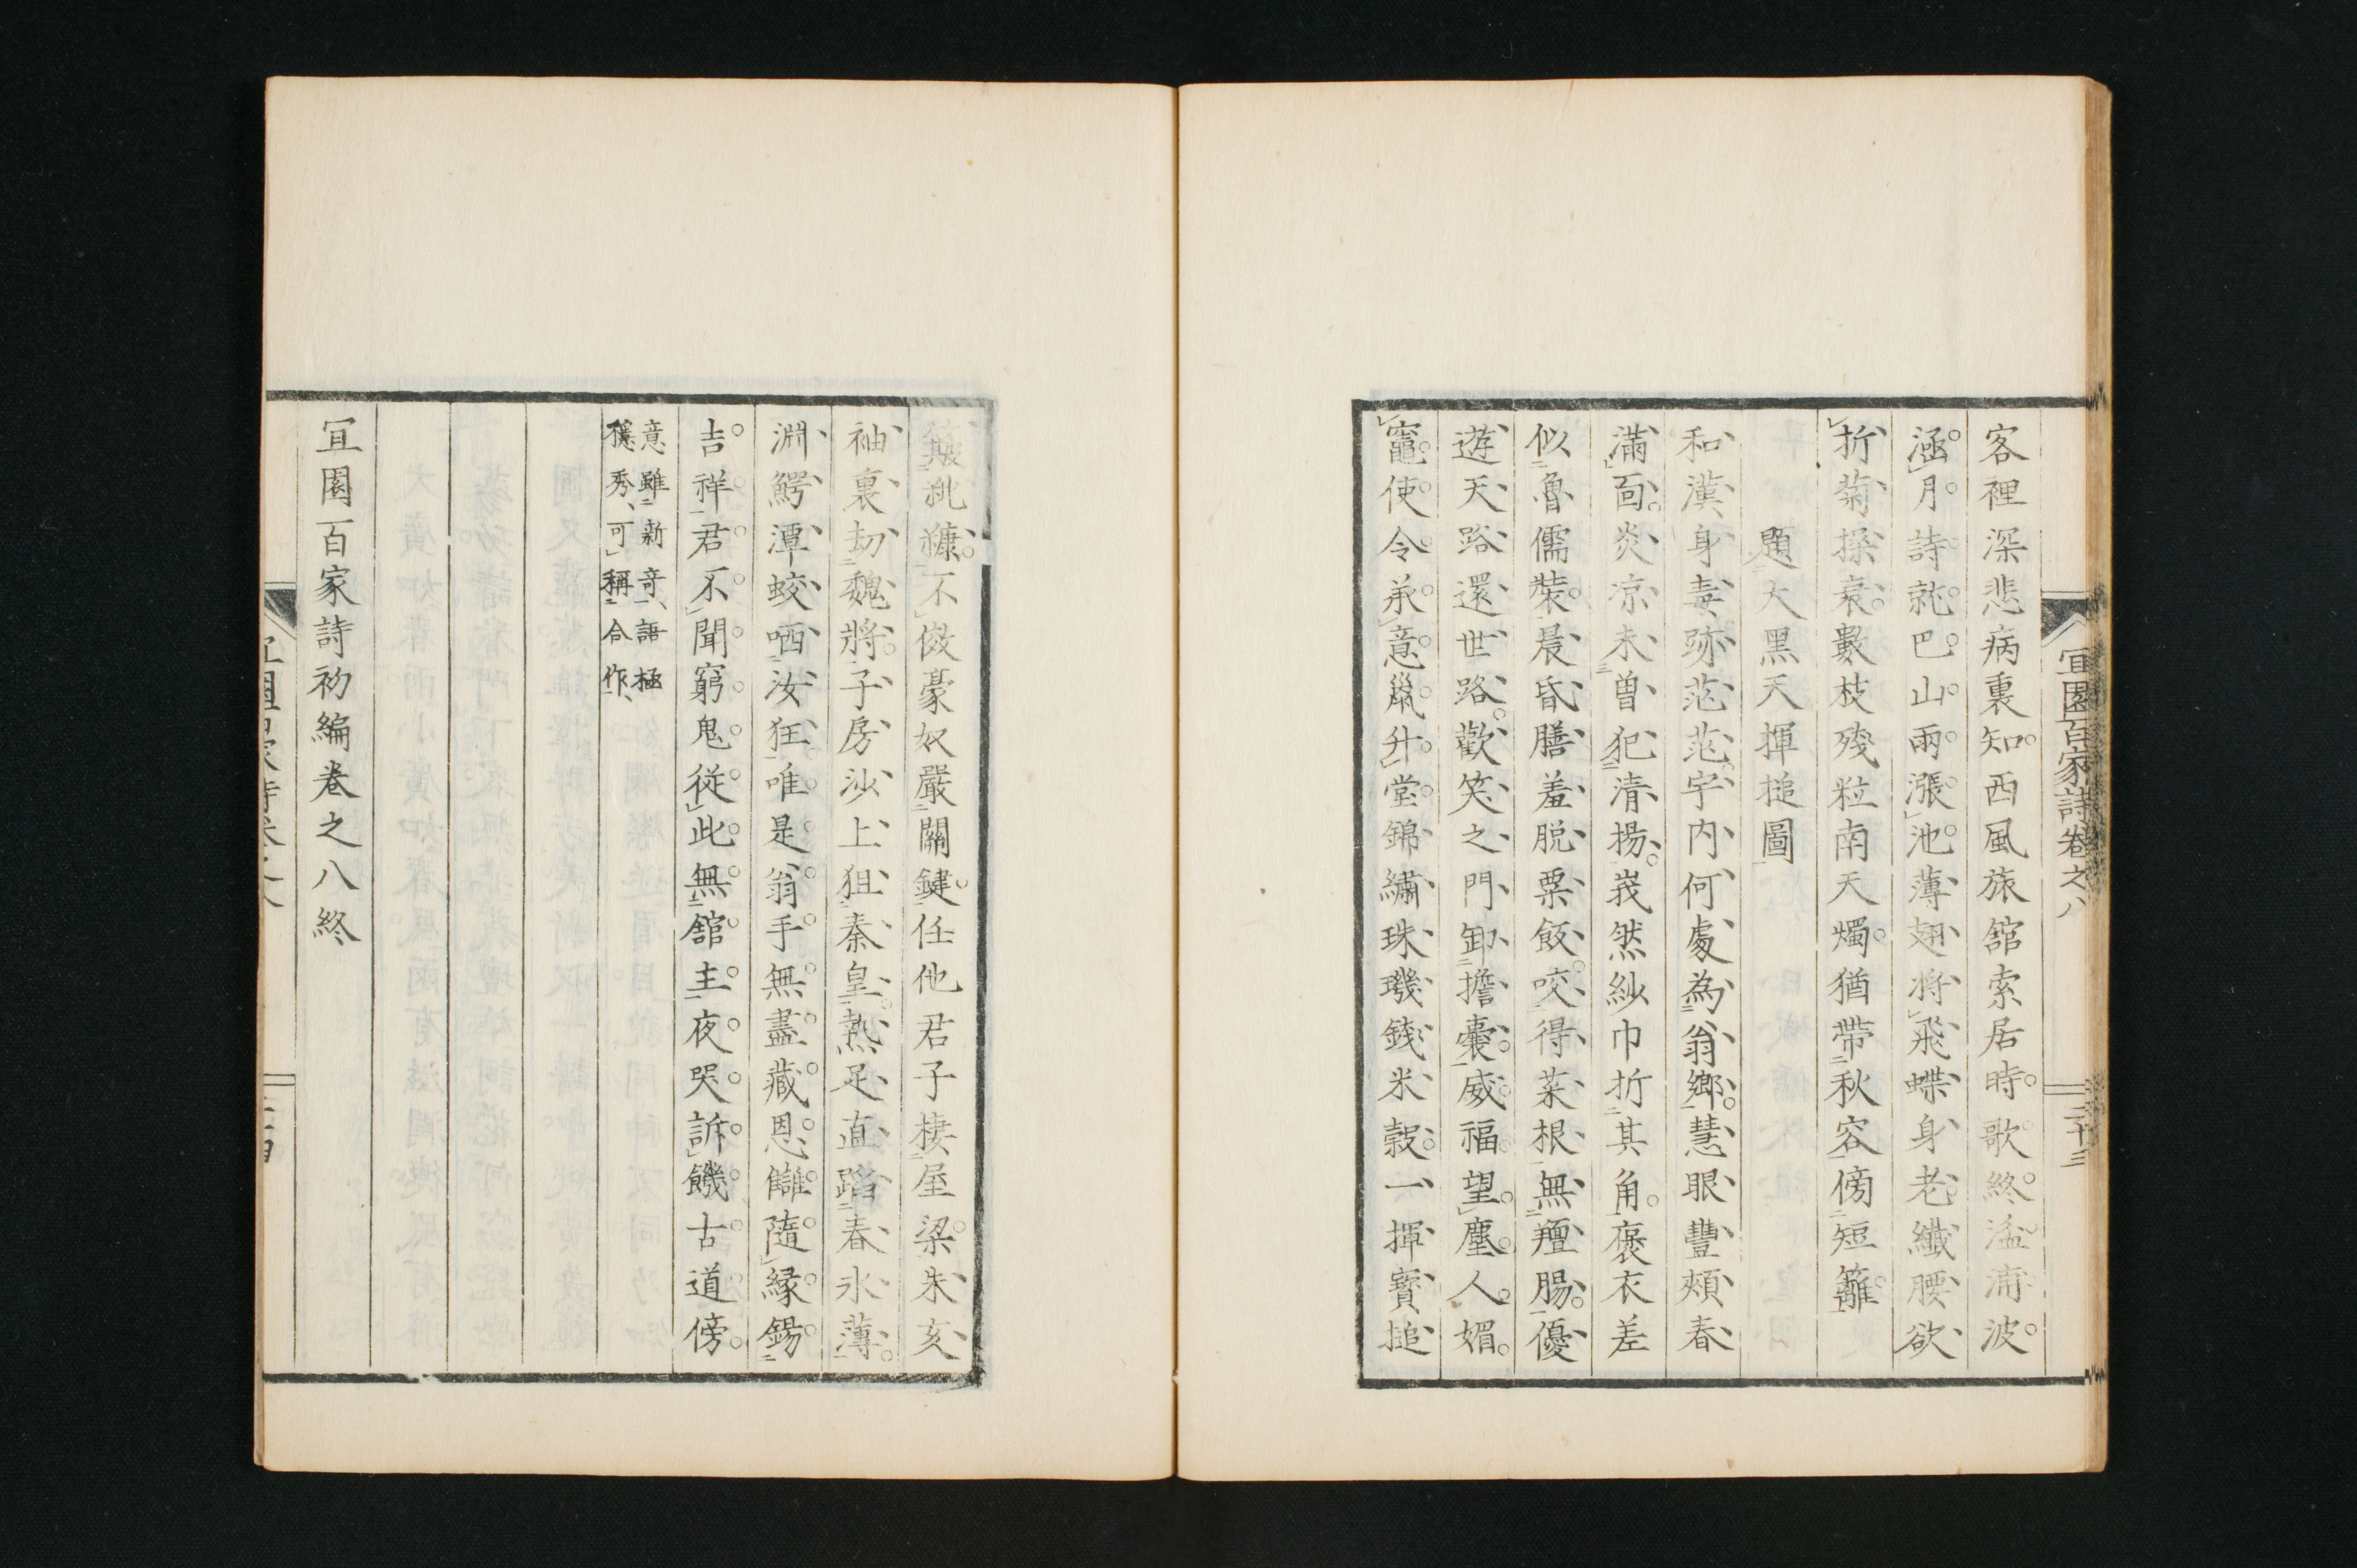 宜園百家詩卷之八
二十三
客裡深悲病裏知西風旅館索居時歌終溢浦波
涵月詩就巴山雨漲池薄翅將飛蝶身老纖腰欲
折菊操衰數枝殘粒南天燭猶帶秋容傍短籬
題大黑天揮槌圖
和漢身毒跡茫茫宇内何處為翁鄉慧眼豐頰春
滿面炎凉未曽犯清揚峩然紗巾折其角褒衣差
似魯儒裝晨昏膳羞脱粟飯咬得菜根無羶腸優
遊天路還世路歡笑之門卸擔囊威福望塵人媚
竈使令承意鼠升堂錦繡珠璣錢米穀一揮寶槌
簸秕糠不倣豪奴嚴關鍵任他君子棲屋梁朱亥
袖裏劫魏將子房沙上狙秦皇熱足直蹈春氷薄
淵鰐潭蛟哂汝狂唯是翁手無盡藏恩讎隨縁錫
吉祥君不聞窮鬼從此無舘主夜哭訴饑古道傍
意雖新奇語極
穩秀可稱合作
宜園百家詩初編卷之八終